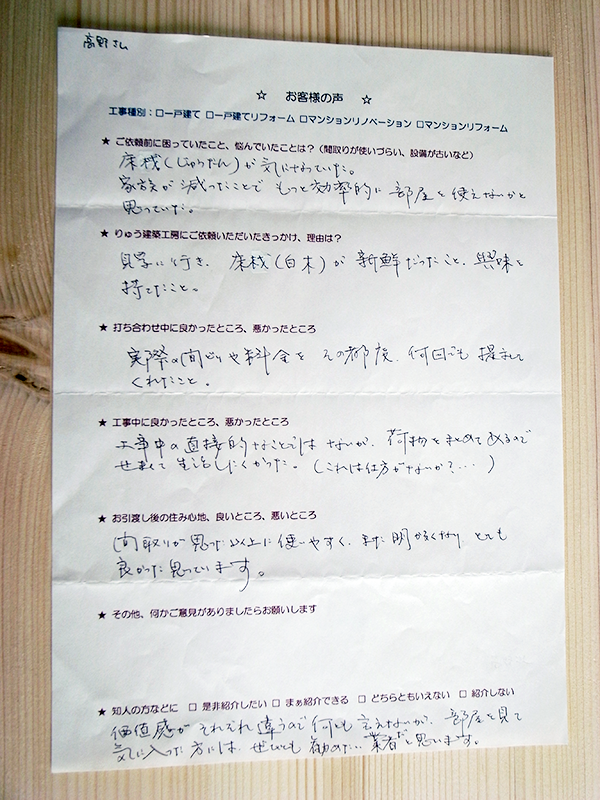 高野さん
☆ お客様の声 ☆
工事種別：□一戸建て □一戸建てリフォーム □マンションリノベーション □マンションリフォーム
★ ご依頼前に困っていたこと、悩んでいたことは？（間取りが使いづらい、設備が古いなど）
床材（じゅうたん）が気になっていた。
家族が減ったことでもっと効率的に部屋を使えないかと
思っていた。
★ りゅう建築工房にご依頼いただいたきっかけ、理由は？
見学に行き、床材（白木）が新鮮だったこと、興味を
持てたこと。
★ 打ち合わせ中に良かったところ、悪かったところ
実際の間取りや料金をその都度、何回でも提示して
くれたこと。
★ 工事中に良かったところ、悪かったところ
工事中の直接的なことではないが、荷物をまとめてあるので
せまくて生活しにくかった。（これは仕方がないか？・・・）
★ お引渡し後の住み心地、良いところ、悪いところ
間取りが思った以上に使いやすく、また明るくなり、とても
良かった思っています。
★ その他、何かご意見がありましたらお願いします
★ 知人の方などに □ 是非紹介したい □ まぁ紹介できる □ どちらともいえない □ 紹介しない
価値感がそれぞれ違うので何とも言えないが、部屋を見て
気に入った方には、ぜひとも勧めたい業者だと思います。